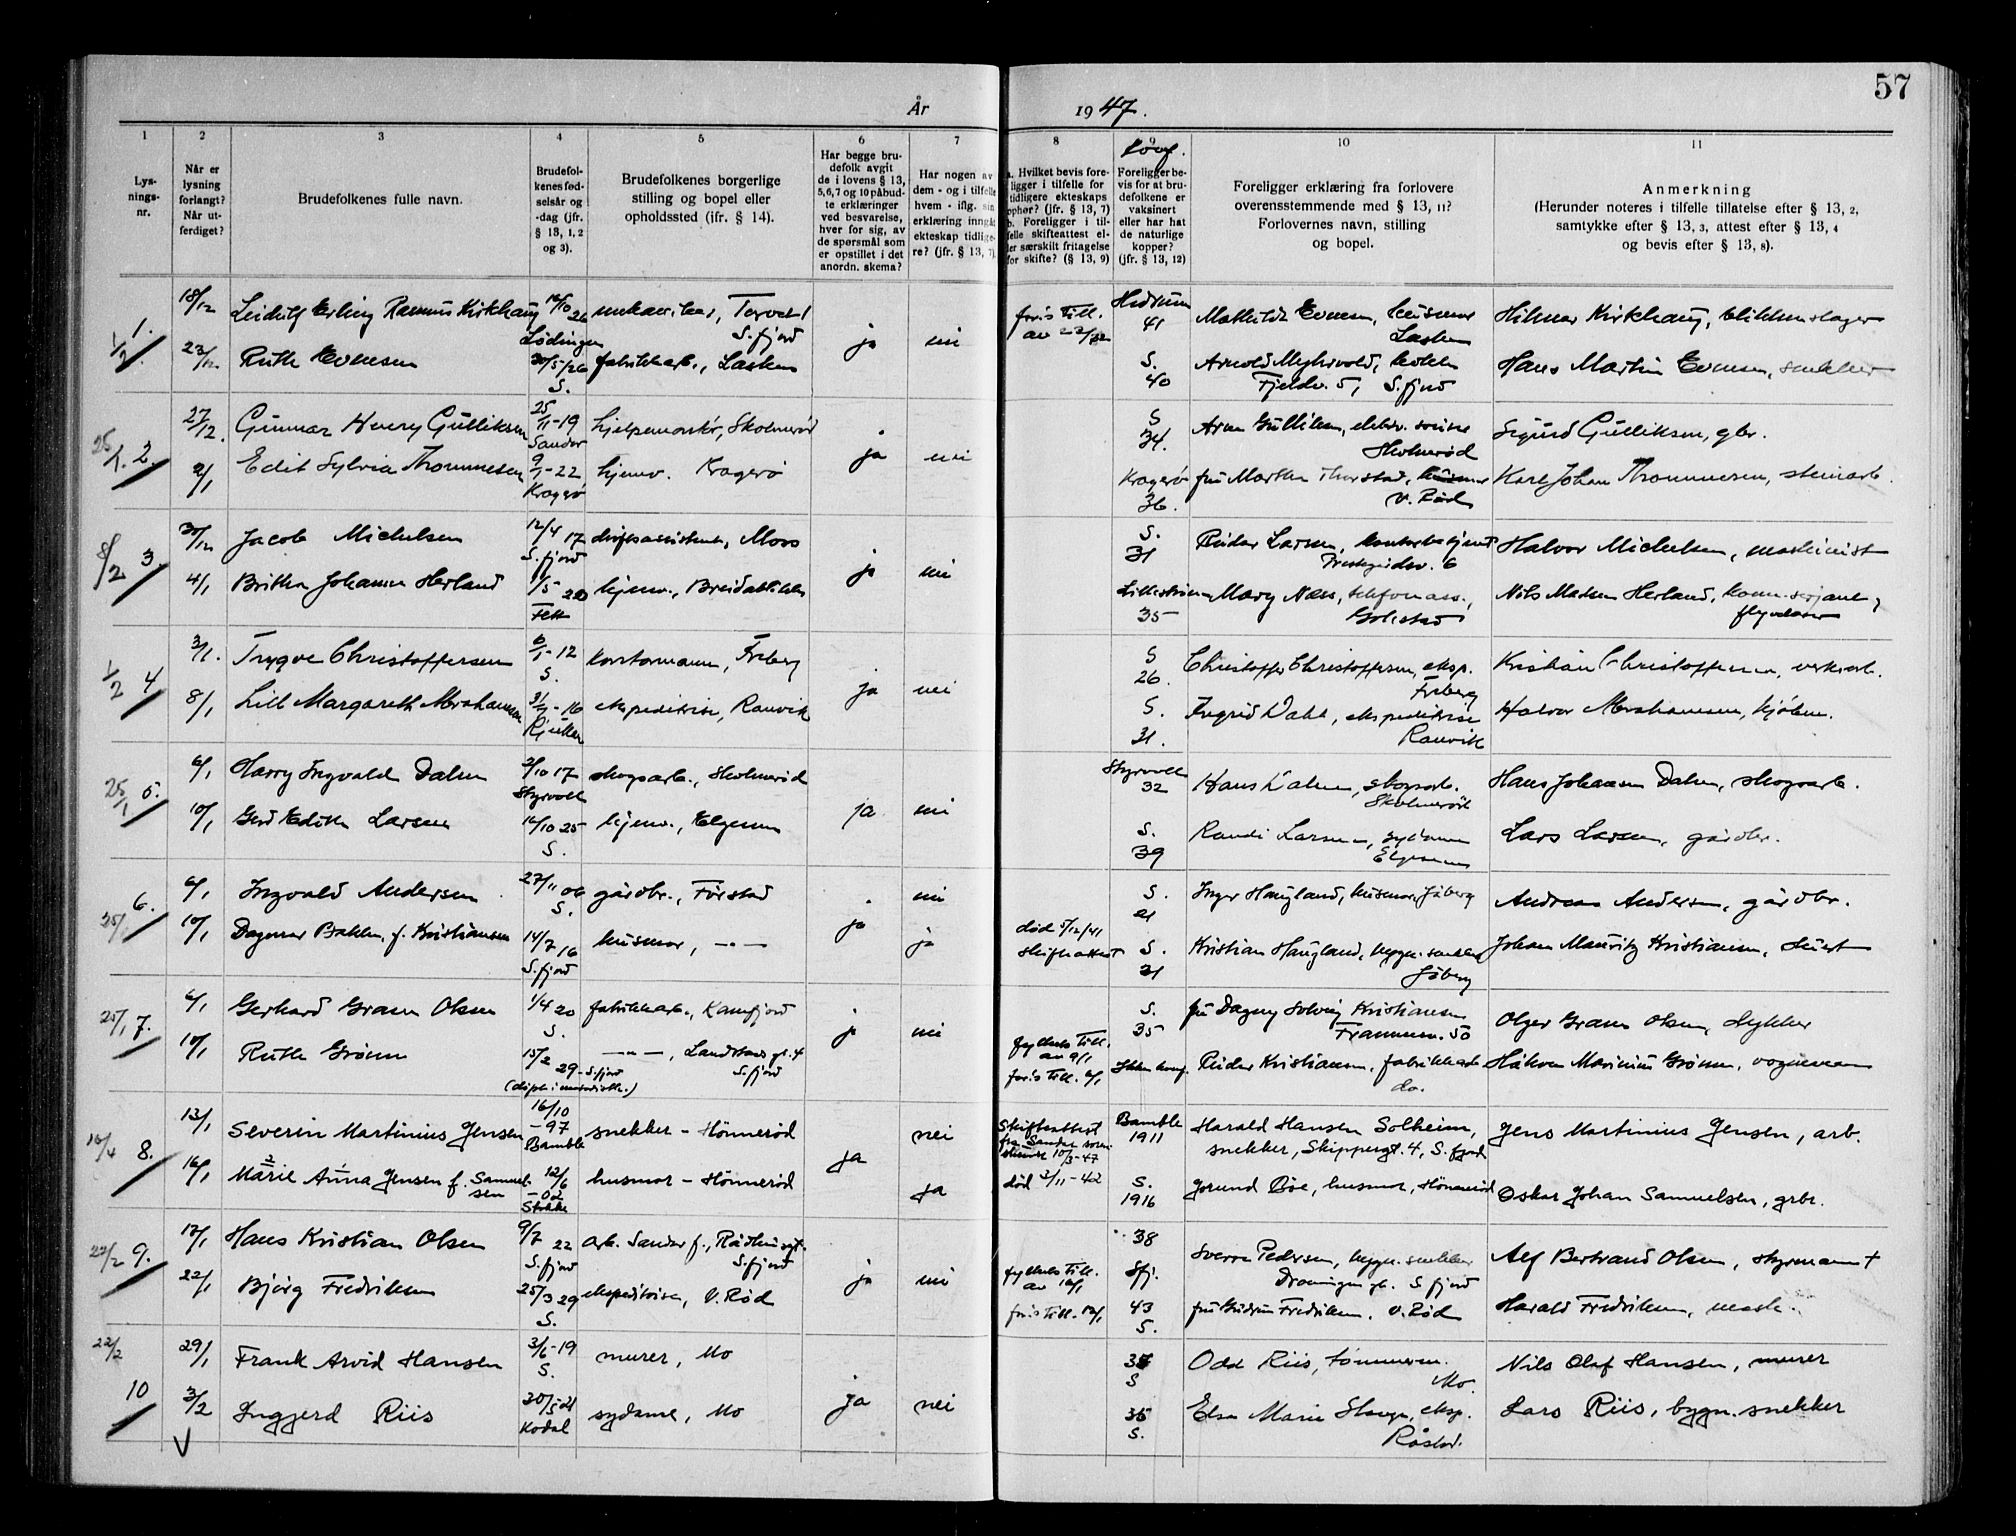 57
År 1947.
1
Lys-
nings-
nr.
2
Når er
lysning
forlangt?
Når ut-
ferdiget?
3
Brudefolkenes fulle navn.
4
Brudefol-
kenes fød-
selsår og
-dag (jfr.
§ 13, 1, 2
og 3).
5
Brudefolkenes borgerlige
stilling og bopel eller
opholdssted (jfr. § 14).
6
Har begge bru-
defolk avgit
de i lovens § 13,
5,6,7 og 10 påbud-
te erklæringer
ved besvarelse,
hver for sig, av
de spørsmål som
er opstillet i det
anordn. skema?
7
Har nogen av
dem - og i tilfelle
hvem - iflg. sin
erklæring inngått
ekteskap tidlige-
re? (jfr. § 13, 7).
8
a. Hvilket bevis fore-
ligger i tilfelle for
tidligere ekteskaps
ophør? (jfr. § 13, 7)
b. Foreligger i til-
felle skifteattest el-
ler særskilt fritagelse
for skifte? (§ 13, 9)
9
Foreligger be-
vis for at bru-
defolkene er
vaksinert
eller har hat
de naturlige
kopper?
(jfr. § 13, 12)
10
Foreligger erklæring fra forlovere
overensstemmende med § 13, 11?
Forlovernes navn, stilling
og bopel.
11
Anmerkning
(Herunder noteres i tilfelle tillatelse efter § 13, 2,
samtykke efter § 13, 3, attest efter § 13, 4
og bevis efter § 13, 8).
1/2 1. 18/12 Leidulf Erling Rasmus Kirkhaug 16/10 26 Torvet 1 Hedrum
Lødingen S.fjord ja nei 41 Hilmar Kirkhaug, blikkenslager
23/12 Ruth Evensen 30/5/26 fabrikkarb., Lasken S. Arnold Myhrvold,
S. 40 Fjeldv. 5, S.fjord Hans Martin Evensen, snekker
25/1 2. 27/12. Gunnar Henry Gulliksen 25/11-19 Skolmerød S 34. Sigurd Gulliksen, gbr.
Sandar ja nei Skolmerød
2/1 Edit Sylvia Thommesen 9/1-22 hjemv. Kragerø Kragerø fru Martha Thorstad, husmor Karl Johan Thommesen, steinarb.
Kragerø 36. V. Rød
8/2 3. 30/12 Jacob Michelsen 12/4 17 Moss S. 31 Reidar Larsen, Halvor Michelsen, maskinist
S.fjord ja nei
4/1 Britha Johanne Herland 1/5 20 hjemv., Breidablikk Lillestrøm Mary Næss, telefonass., Nils Madsen Herland,
Fett 35
1/2 4 3/1. Trygve Christoffersen 6/1-12 kontormann, Freberg S 26. Christoffer Christoffersen, eksp. Kristian Christoffersen, verksarb.
S. ja nei Freberg
8/1 Lill Margareth Abrahamsen 16 ekspeditrise, Ranvik S. 31. Ingrid Dahl, ekspeditrise Halvor Abrahamsen, kjøbm.
Rjukan Ranvik
25/1 5. 6/1 Harry Ingvald Dalen 2/10 17 skogsarb., Skolmerød Styrvoll 32 Hans Dalen, skogsarb. Hans Johansen Dalen, skogsarb.
Styrvoll ja nei Skolmerød
10/1 Gerd Edith Larsen 14/10 25 hjemv., Elgesem S. 39 Randi Larsen, sydame Lars Larsen, gårdbr.
S. Elgesem
25/1 6. 6/1 Ingvald Andersen 27/11 06 gårdbr., Førstad nei S. 21 Inger Haugland, husmor, Jåberg Andreas Andersen, gårdbr.
S. ja
10/1 Dagmar Bakken, f. Kristiansen 14/7 16 husmor, -"- ja død 5/12/41 S. Kristian Haugland, bygn. snekker Johan Mauritz Kristiansen,
S.fjord skifteattest 21 Jåberg
25/1 7. 6/1 Gerhard Gram Olsen 1/4 20 fabrikkarb., Kamfjord S. 35 fru Dagny Solveig Kristiansen Olger Gram Olsen,
S. ja nei Framnesv. 50
10/1 Ruth Grønn 15/2 29 - S.fjord -"-, Landstads gt. 4 fylkets till. av 9/1 Reidar Kristiansen, fabrikkarb. Håkon Marinius Grønn, vognmann
S.fjord do.
10/4 8. 13/1 Severin Martinius Jensen 16/10 -97 snekker - Hönneröd nei Skifteattest Bamble Harald Hansen Solheim, Jens Martinius Jensen, arb.
Bamble ja fra Sandar soren- 10/3-47 1911 snekker, Skippergt. 4, S.fjord
16/1 Marie Anna Jensen f. Samuelsen 12/6 -02 husmor - Hönneröd ja død 3/11-42 S. Jorund Bøe, husmor, Hönneröd Oskar Johan Samuelsen, grbr.
Stokke 1916
22/2 9. 17/1 Hans Kristian Olsen 9/7 22 arb. Sandar f., Rådhusgt. 38 Sverre Pedersen, bygn. snekker Alf Bertrand Olsen, styrmann †
S.fjord S.fjord ja nei fylkets till. Sfj. Dronningens gt. S.fjord
22/1 Bjørg Fredriksen 25/3 29 ekspeditrise, V. Rød 43 fru Gudrun Fredriksen. V. Rød Harald Fredriksen,
S. S.
22/2 10 29/1 Frank Arvid Hansen 3/6-19 murer, Mo S Odd Riis, tømmerm. Nils Olaf Hansen, murer
S. ja nei Mo.
3/2 Inggjerd Riis 30/5-21 sydame, Mo 35 Else Marie eksp. Lars Riis, bygn. snekker
Kodal S. Råstad.